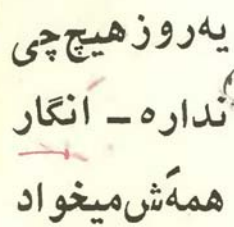 یه‌روز هیچ‌چی
نداره ــ انگار
همه‌َش میخواد